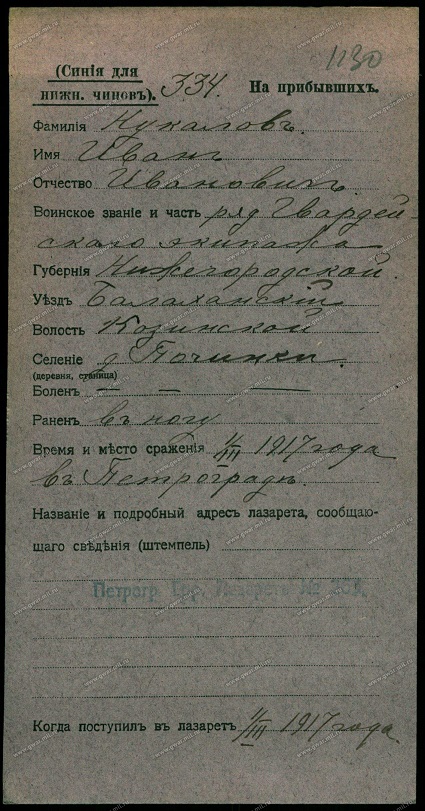 1130
(Синія для
нижн. чиновъ).
334.
На прибывшихъ.
Фамилія Кукаловъ.
Имя Иванъ
Отчество Ивановичъ.
Воинское званіе и часть ряд Гвардей-
скаго экипажа
Губернія Нижегородской.
Уѣздъ Балаханскій
Волость Козинской
Селеніе д Починки.
(деревня, станица)
Боленъ — — —
Раненъ въ ногу
Время и мѣсто сраженія 1/III 1917 года
въ Петроградѣ.
Названіе и подробный адресъ лазарета, сообщаю-
щаго свѣдѣнія (штемпель)
Петрогр. Гор. Лазаретъ №
Когда поступилъ въ лазаретъ 1/III 1917 года.